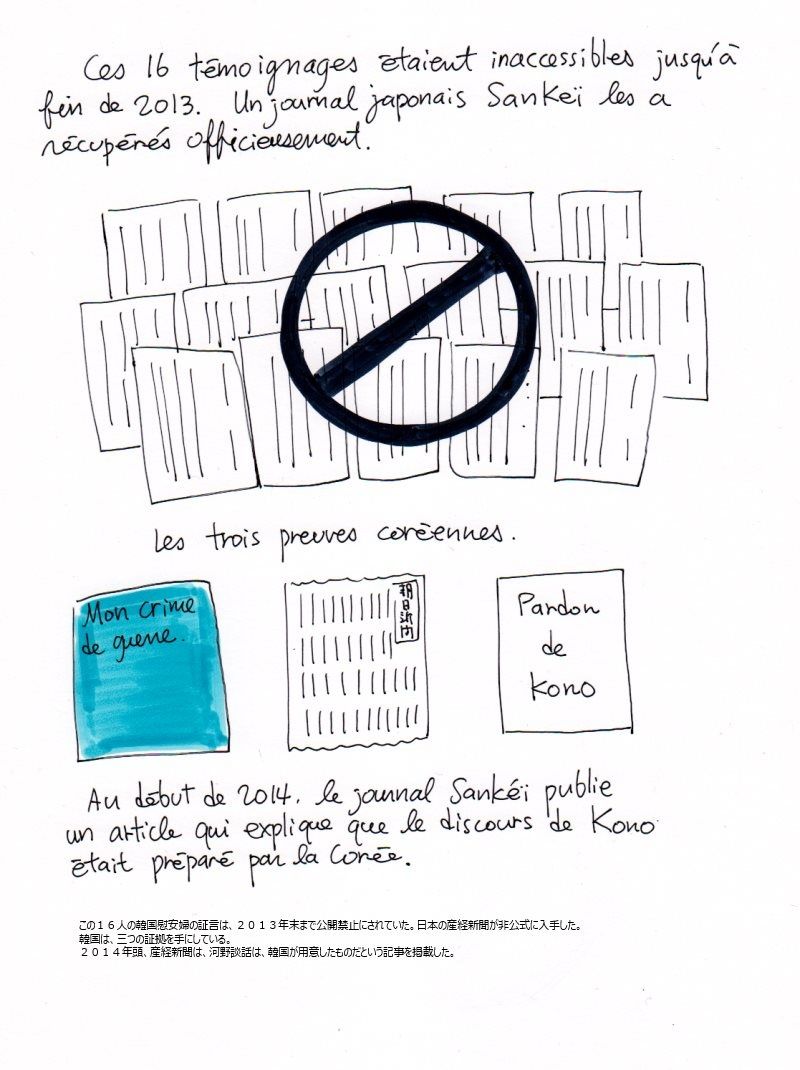 Ces 16 témoignages étaient inaccessibles jusqu'à
fin de 2013. Un journal japonais Sankeï les a
récupérés officieusement.
Les trois preuves coréennes.
Mon crime
de guerre.
朝日新聞
Pardon
de
Kono
Au début de 2014, le journal Sankéi publie
un article qui explique que le discours de Kono
était préparé par la Corée.
この１６人の韓国慰安婦の証言は、２０１３年末まで公開禁止にされていた。日本の産経新聞が非公式に入手した。
韓国は、三つの証拠を手にしている。
２０１４年頭、産経新聞は、河野談話は、韓国が用意したものだという記事を掲載した。